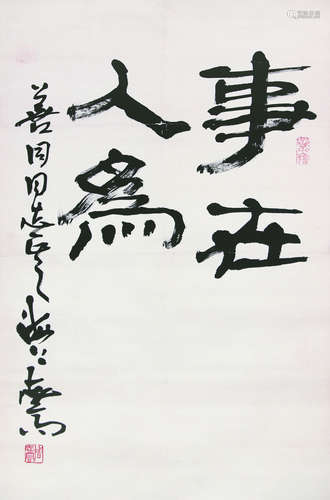 事在
人為
善同同志正之
海上